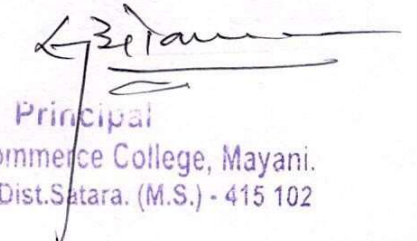 Principal
ommerce College, Mayani.
Dist.Satara. (M.S.) - 415 102